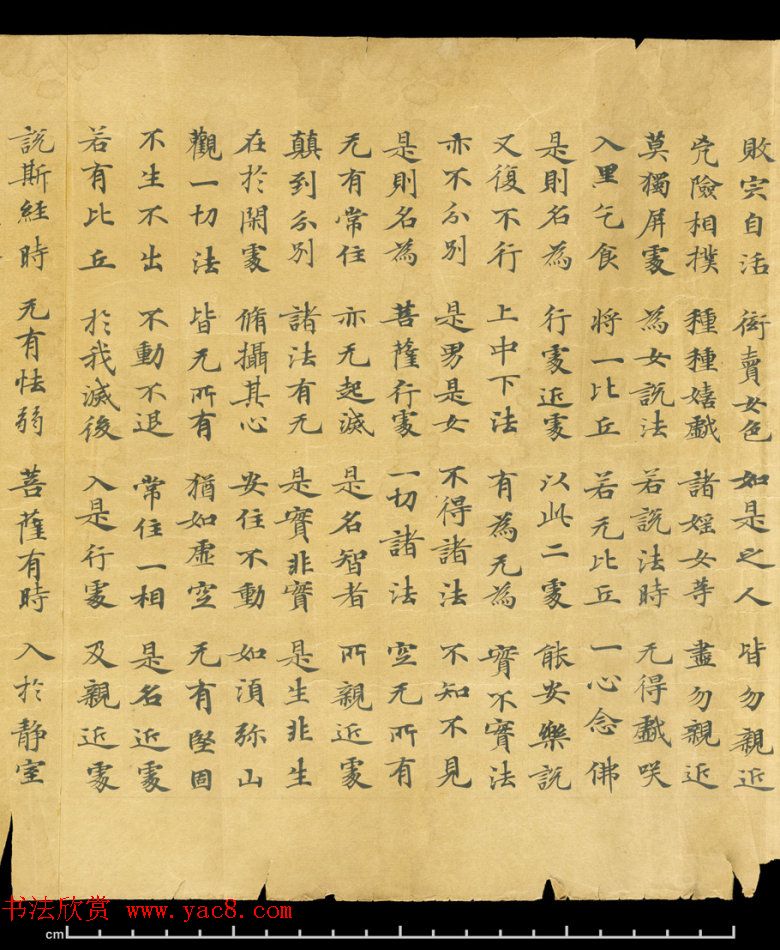 畋宍自活 衒賣女色 如是之人 皆勿親近
兇險相撲 種種嬉戱 諸婬女等 盡勿親近
莫獨屏處 為女說法 若說法時 无得戱咲
入里乞食 將一比丘 若无比丘 一心念佛
是則名為 行處近處 以此二處 能安樂說
又復不行 上中下法 有為无為 實不實法
亦不分別 是男是女 不得諸法 不知不見
是則名為 菩薩行處 一切諸法 空无所有
无有常住 亦无起滅 是名智者 所親近處
顛到分別 諸法有无 是實非實 是生非生
在於閑處 脩攝其心 安住不動 如湏弥山
觀一切法 皆无所有 猶如虛空 无有堅固
不生不出 不動不退 常住一相 是名近處
若有比丘 於我滅後 入是行處 及親近處
說斯經時 无有怯弱 菩薩有時 入於静室
书法欣赏 www.yac8.com
cm